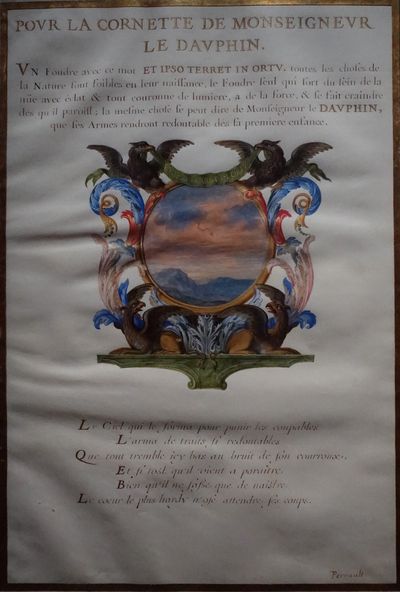 POVR LA CORNETTE DE MONSEIGNEVR
LE DAVPHIN.
VN Foudre avec ce mot ET IPSO TERRET IN ORTV. toutes les choses de
la Nature sont foibles en leur naissance, le Foudre seul qui sort du sein de la
nüe avec éclat & tout couronné de lumiere, a de la force, & se fait craindre
dés qu'il paroist; la mesme chose se peut dire de Monseigneur le DAVPHIN,
que ses Armes rendront redoutable dés sa premiere enfance.
Le Ciel qui le forma pour punir les coupables
L'arma de traits si redoutables
Que tout tremble icy bas au bruit de son courroux,
Et si tost qu'il vient a paraître,
Bien qu'il ne fasse que de naistre,
Le coeur le plus hardy n'ose attendre ses coups.
Perrault